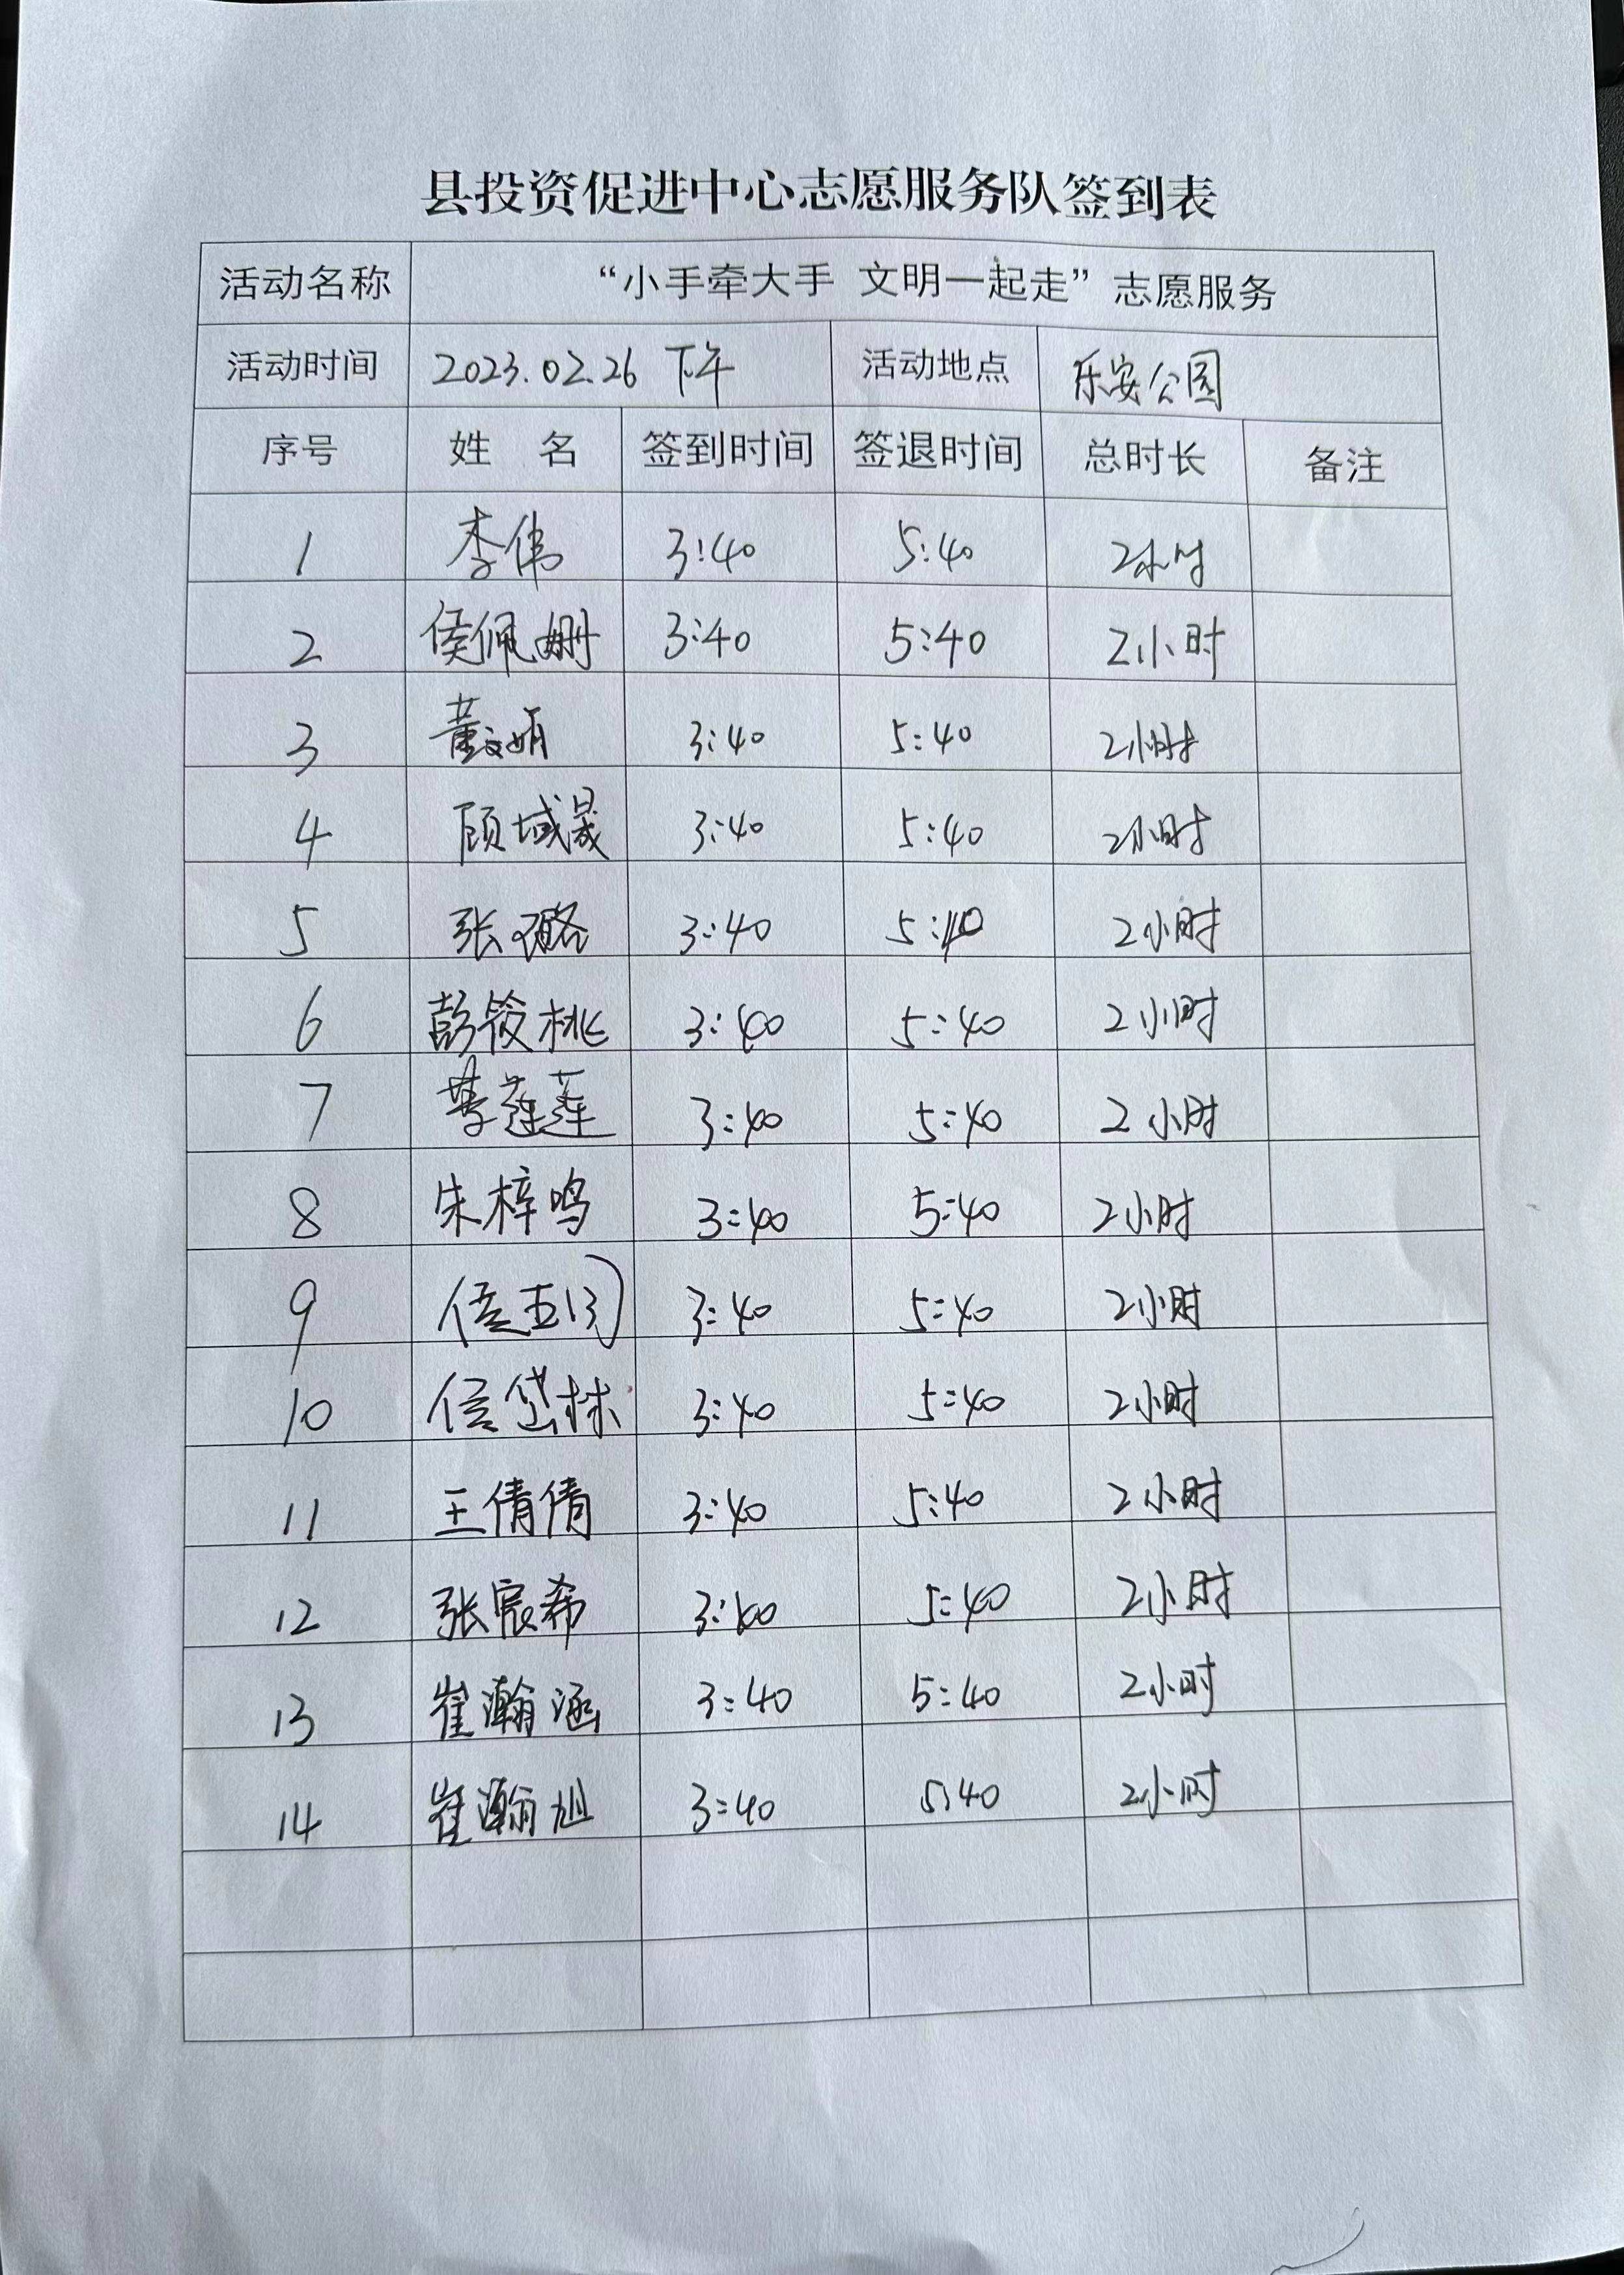 县投资促进中心志愿服务队签到表
活动名称 “小手牵大手 文明一起走”志愿服务
活动时间 2023.02.26 下午 活动地点 乐安公园
序号 姓 名 签到时间 签退时间 总时长 备注
1 李伟 3:40 5:40 2小时
2 侯佩姗 3:40 5:40 2小时
3 董文娟 3:40 5:40 2小时
4 顾域晟 3:40 5:40 2小时
5 张璐 3:40 5:40 2小时
6 彭筱桃 3:40 5:40 2小时
7 莲莲 3:40 5:40 2小时
8 朱梓鸣 3:40 5:40 2小时
9 3:40 5:40 2小时
10 3:40 5:40 2小时
11 王倩倩 3:40 5:40 2小时
12 张宸希 3:40 5:40 2小时
13 崔瀚涵 3:40 5:40 2小时
14 崔瀚旭 3:40 5:40 2小时